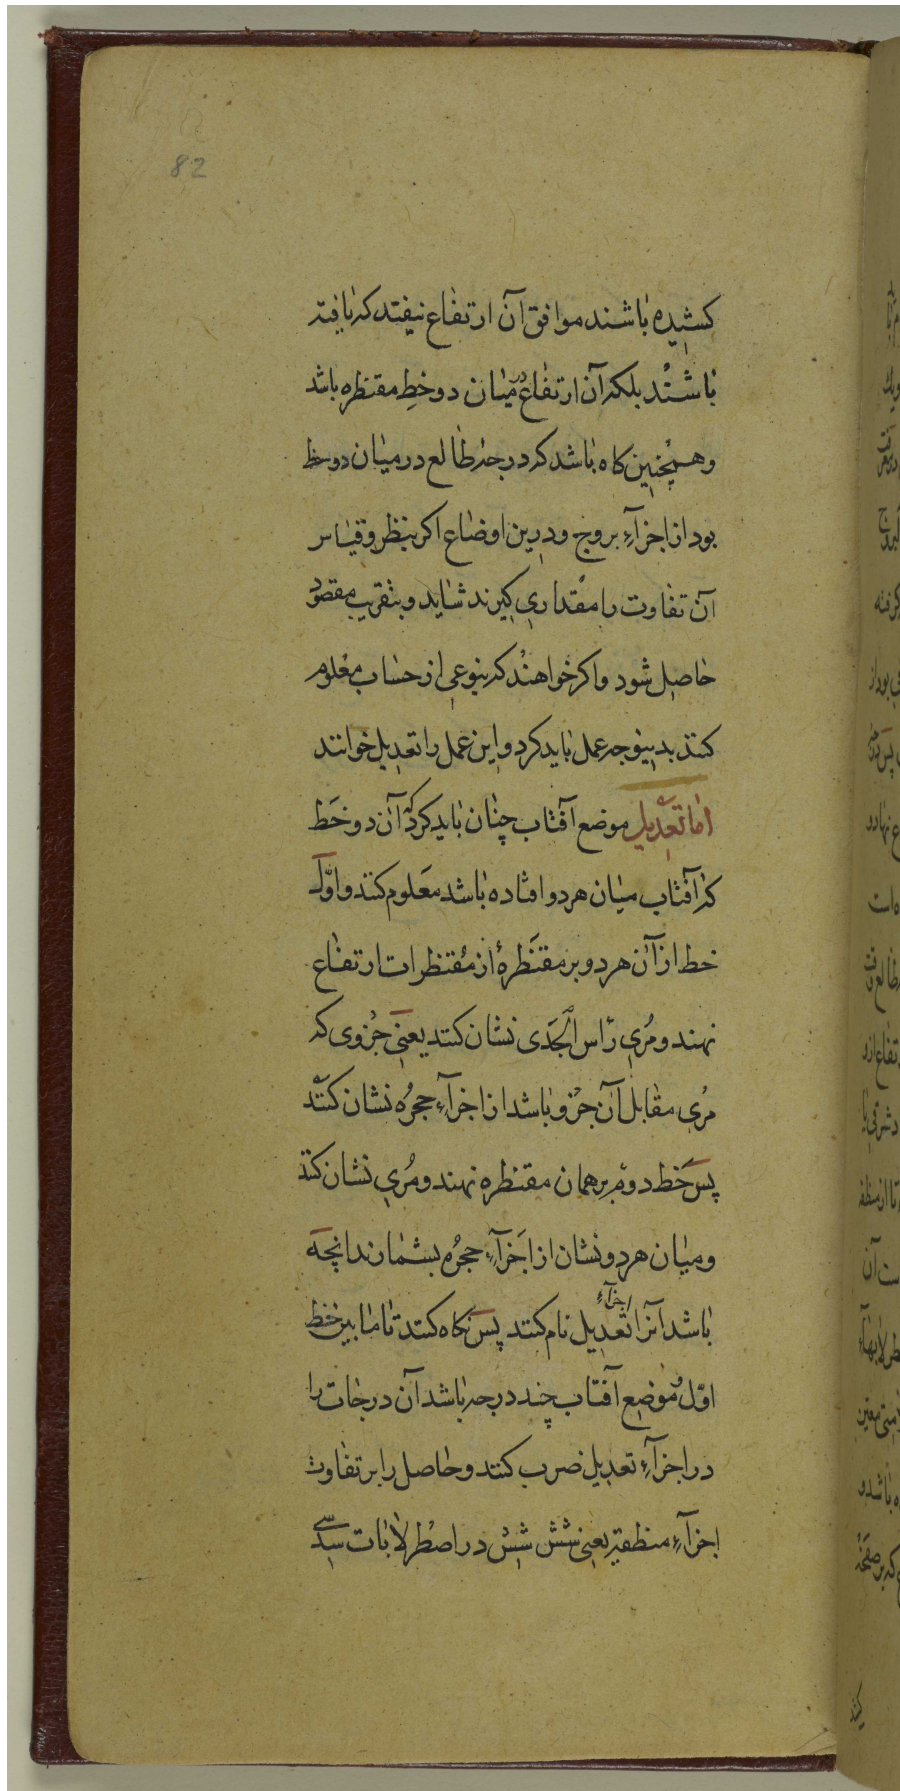 82
کشیده باشند موافق آن ارتفاع نیفتد که یافته
باشند بلکه آن ارتفاع در میان دو خط مقنطره باشد
و همچنین کاه باشد که درجهٔ طالع در میان دو خط
بود از اجزآء بروج و درین اوضاع اکر بنظر و قیاس
آن تفاوت را مقداری کیرند شاید و بتقریب مقصود
حاصل شود و اکر خواهند که بنوعی از حساب معلوم
کنند بدینوجه عمل باید کرد و این عمل را تعدیل خوانند
اما تعدیل موضع آفتاب چنان باید کرد که آن دو خط
که آفتاب میان هر دو افتاده باشد معلوم کنند و اوّل
خط از آن هر دو بر مقنطرهٔ از مقنطرات ارتفاع
نهند و مُری رأس الجَدی نشان کنند یعنی جزوی که
مُری مقابل آن جزو باشد از اجزآء حجره نشان کنند
پس خط دوم بر همان مقنطره نهند و مُری نشان کنند
و میان هر دو نشان از اجزآء حجرُه بشمارند انچه
باشد آنرا اجزآء تعدیل نام کنند پس نکاه کنند تا ما بین خط
اوّل و موضع آفتاب چند درجه باشد آن درجات را
در اجزآء تعدیل ضرب کنند و حاصل را بر تفاوت
اجزآء منطقه یعنی شش شش در اصطرلابات سدسی